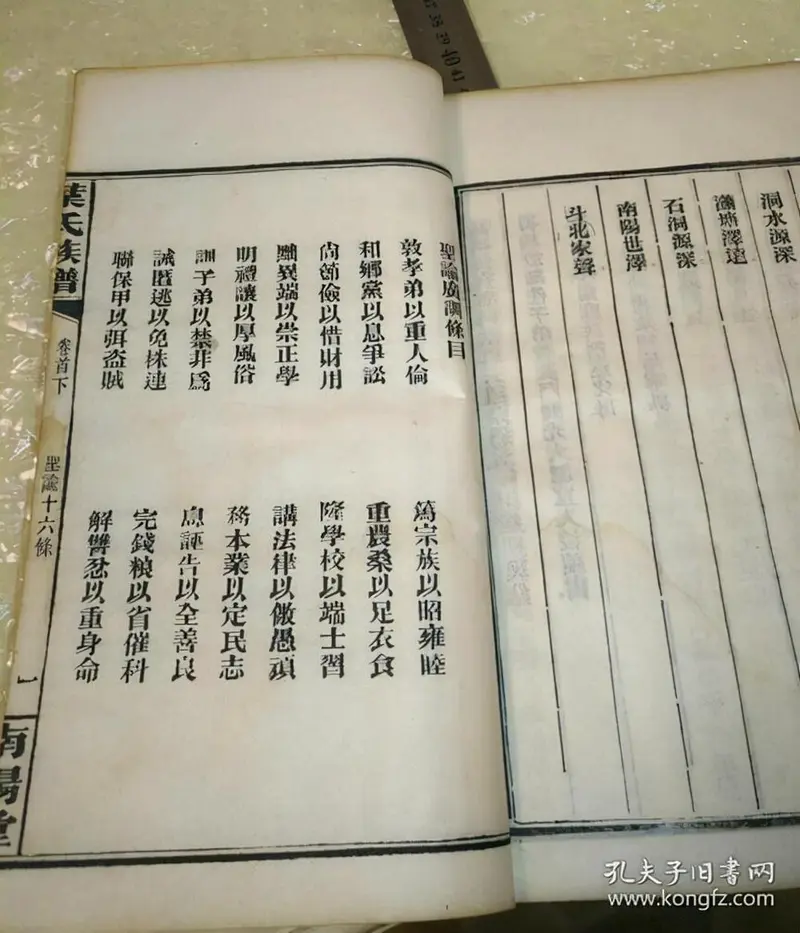 洞水源深
塘澤遠
石洞源深
南陽世澤
斗北家聲
聖諭廣訓條目
敦孝弟以重人倫 篤宗族以昭雍睦
和鄉黨以息爭訟 重農桑以足衣食
尚節儉以惜財用 隆學校以端士習
黜異端以崇正學 講法律以儆愚頑
明禮讓以厚風俗 務本業以定民志
訓子弟以禁非爲 息誣告以全善良
誡匿逃以免株連 完錢粮以省催科
聯保甲以弭盜賊 解讐忿以重身命
葉氏族譜
卷首下
聖諭十六條
一
南陽堂
39 40 41
孔夫子旧书网
www.kongfz.com